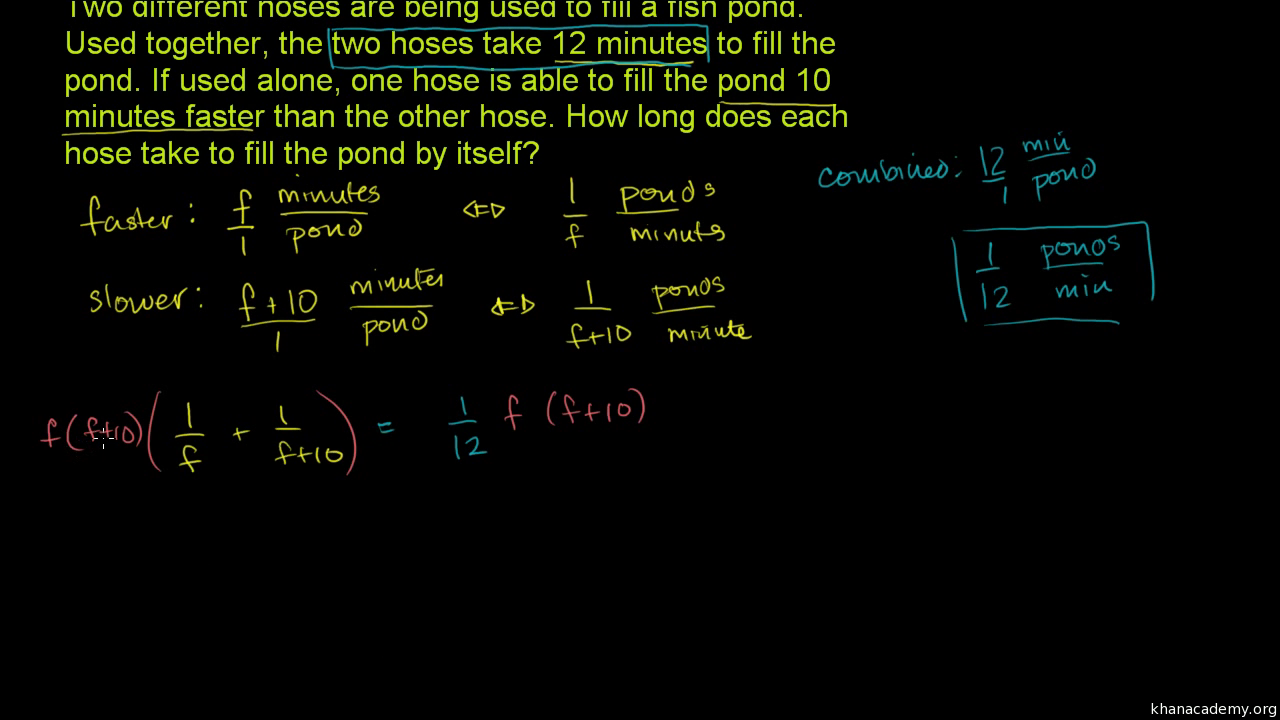 Two different hoses are being used to fill a fish pond.
Used together, the two hoses take 12 minutes to fill the
pond. If used alone, one hose is able to fill the pond 10
minutes faster than the other hose. How long does each
hose take to fill the pond by itself?
combined: 12/1 min/pond
faster: f/1 minutes/pond ⇔ 1/f ponds/minutes
1/12 ponds/min
slower: f+10/1 minutes/pond ⇔ 1/f+10 ponds/minute
f(f+10)(1/f + 1/f+10) = 1/12 f (f+10)
khanacademy.org